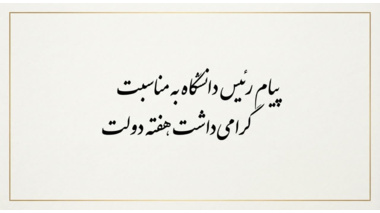 پیام رئیس دانشگاه به مناسبت
گرامی داشت هفته دولت